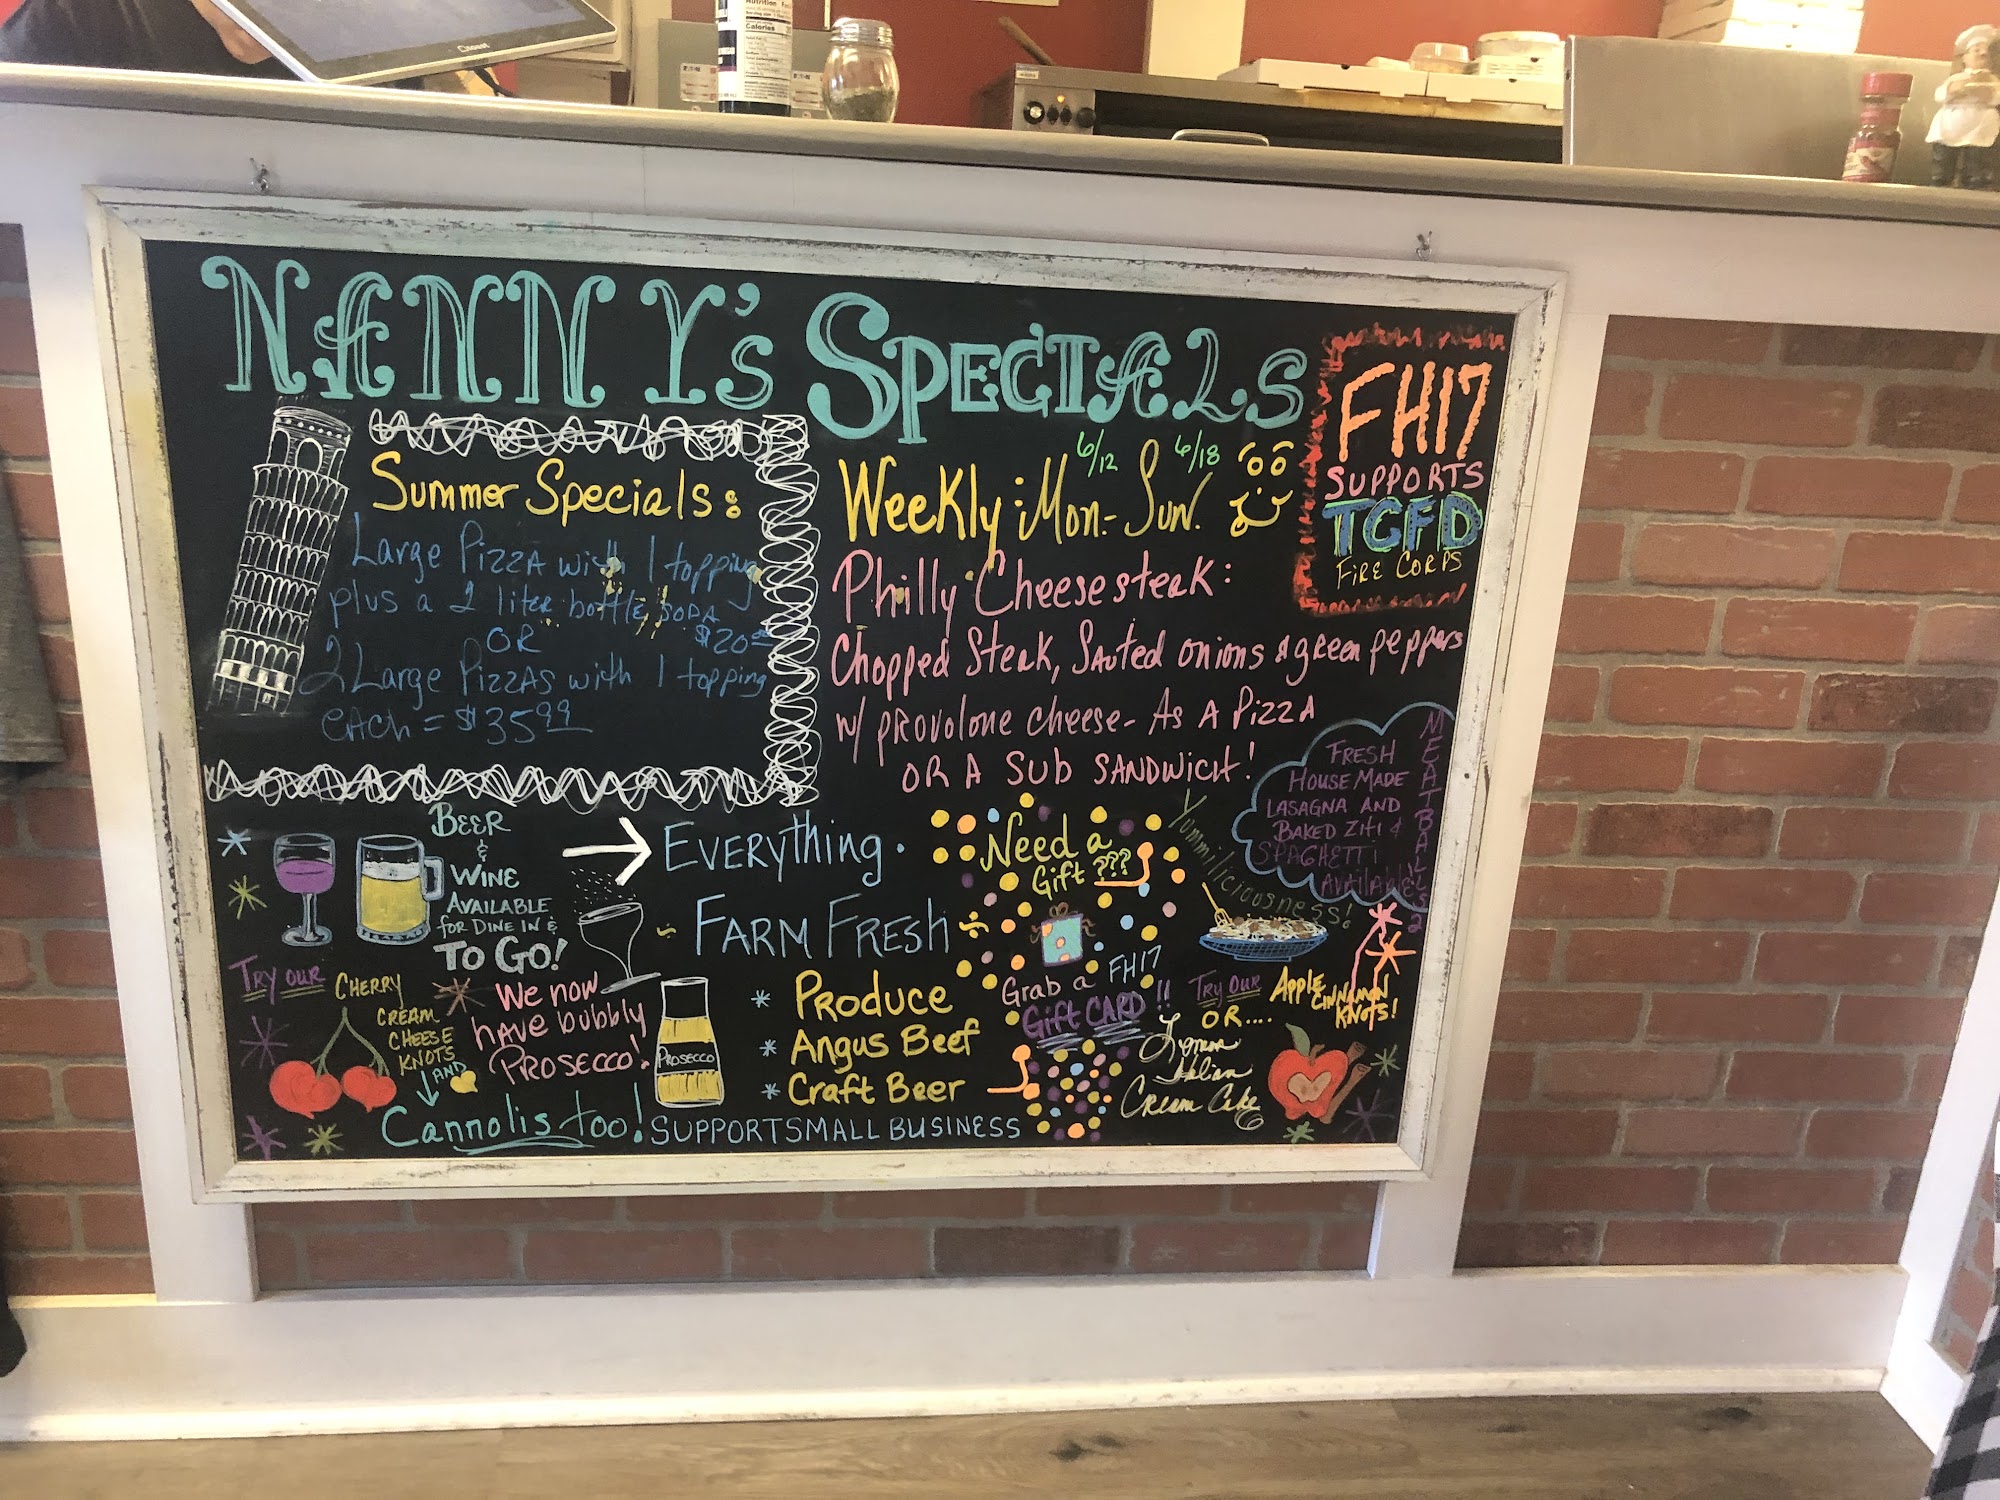 NANNY's SPECIALS
Summer Specials:
Large Pizza with 1 topping
plus a 2 liter bottle soda
OR $20.00
2 Large Pizzas with 1 topping
each = $35.99
6/12 6/18
Weekly: Mon.- Sun.
Philly Cheesesteak:
Chopped Steak, Sauted onions & green peppers
w/ provolone cheese- As A Pizza
OR A Sub SANDWICH!
FH17
SUPPORTS
TCFD
FIRE CORPS
FRESH
HOUSE MADE
LASAGNA AND
BAKED ZITI &
SPAGHETTI
AVAILABLE
MEATBALLS 2
Yummiliciousness!
BEER
&
WINE
AVAILABLE
for DINE IN &
TO GO!
We now
have bubbly
PROSECCO!
PROSECCO
TRY OUR CHERRY
CREAM
CHEESE
KNOTS
AND
Cannolis too!
EVERYthing.
~ FARM FRESH ~
* PRODUCE
* Angus Beef
* Craft Beer
SUPPORT SMALL BUSINESS
Need a
Gift ???
Grab a FH17
Gift CARD!!
TRY OUR APPLE
CINNAMON
KNOTS!
OR....
Lemon
Italian
Cream Cake
Nutrition
Calories